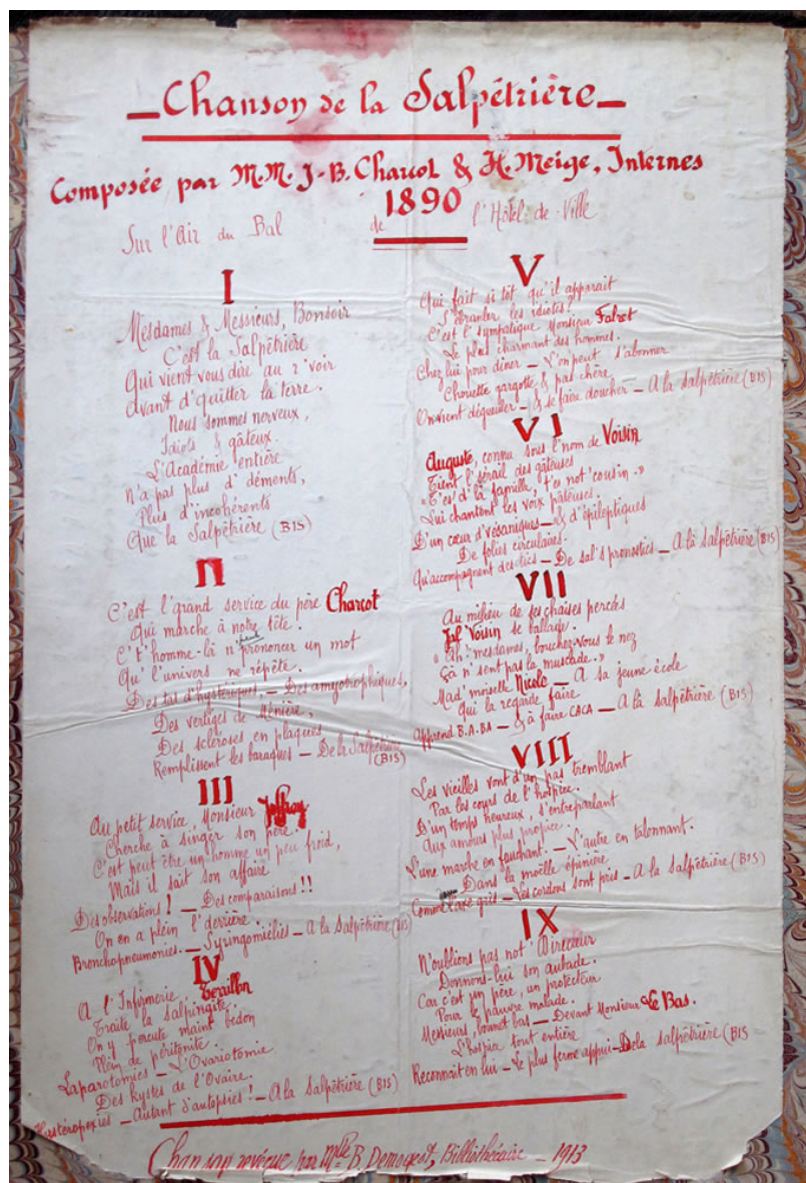 Chanson de la Salpétrière
Composée par M.M. J-B. Charcot & H. Meige, Internes
1890
Sur l'Air du Bal de l'Hôtel-de-Ville
I
Mesdames & Messieurs, Bonsoir
C'est la Salpêtrière
Qui vient vous dire au r'voir
Avant d'quitter la terre.
Nous sommes nerveux,
Idiots & gâteux.
L'Académie entière
N'a pas plus d'déments,
Plus d'incohérents
Que la Salpêtrière (BIS)
II
C'est l'grand service du père Charcot
Qui marche à notre tête.
C't'homme-là n'peut prononcer un mot
Qu'l'univers ne répète.
Des tas d'hystériques, — Des amyotrophiques,
Des vertiges de Ménière,
Des scléroses en plaques
Remplissent les baraques — De la Salpêtrière
(BIS)
III
Au petit service Monsieur Joffroy
Cherche à singer son père.
C'est peut être un homme un peu froid,
Mais il sait son affaire
Des observations! — Des comparaisons!!
On en a plein l'derrière.
Bronchopneumonies. — Syringomiélies — A la Salpêtrière (BIS)
IV
A l'Infirmerie Terillon
Traite la salpingite.
On y percute maint bedon
Plein de péritonite.
Laparotomies — L'Ovariotomie
Des Kystes de l'Ovaire.
Hystéropexies — Autant d'autopsies! — A la Salpêtrière (BIS)
V
Qui fait si tôt qu'il apparait
S'ébranler les idiotes?
C'est l'sympatique Monsieur Falret
Le plus charmant des hommes.
Chez lui pour diner — L'on peut s'abonner
Chouette gargotte & pas chère
On vient dégueuler — & se faire doucher — A la Salpêtrière (BIS)
VI
Auguste, connu sous l'nom de Voisin
Tient l'sérail des gâteuses
"T'es d'la famille, t'es not' cousin."
Lui chantent les voix pâteuses.
D'un cœur d'vésaniques — & d'épileptiques
De folies circulaires.
Qu'accompagnent des tics — De sal's pronostics — A la Salpêtrière (BIS)
VII
Au milieu de ses chaises percées
Jul Voisin se ballade.
"Ah! mesdames, bouchez-vous le nez
Çà n'sent pas la muscade."
Mad'moiselle Nicole — A sa jeune école
Qui la regarde faire
Apprend B.A.BA — & à faire CACA — A la Salpêtrière (BIS)
VIII
Les vieilles vont d'un pas tremblant
Par les cours de l'hospice.
D'un temps heureux, s'entreparlant
Aux amours plus propice.
L'une marche en fauchant. — L'autre en talonnant.
Dans la moëlle épinière
Comme l'axe gris — Les cordons sont pris — A la Salpêtrière (BIS)
IX
N'oublions pas not' Directeur
Donnons-lui son aubade.
Car c'est un père, un protecteur
Pour le pauvre malade.
Messieurs, bonnet bas — Devant Monsieur Le Bas.
L'hospice tout entière
Reconnait en lui — Le plus ferme appui — De la Salpêtrière (BIS
Chanson revécue par Mlle B. Demogeot, Bibliothécaire — 1913